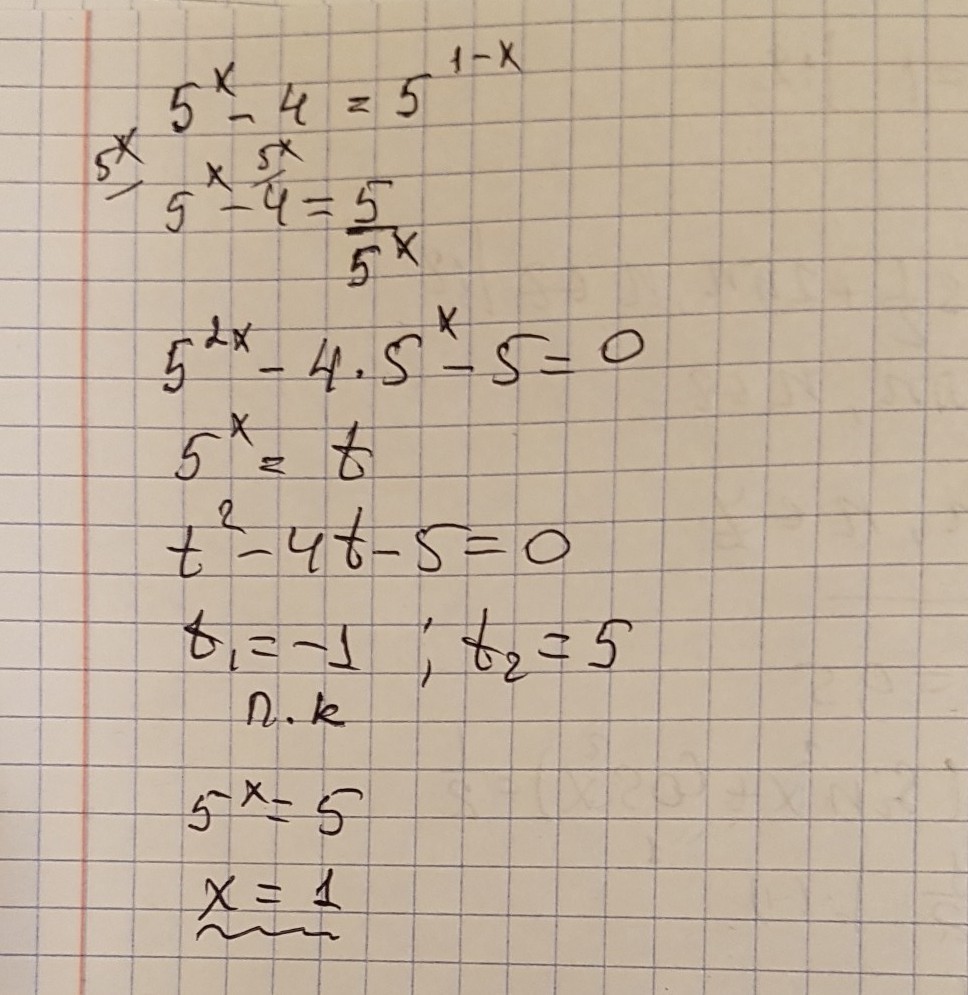 5^x - 4 = 5^{1-x}
5^x/ 5^x - 4 5^x/ = 5/5^x
5^{2x} - 4 · 5^x - 5 = 0
5^x = t
t^2 - 4t - 5 = 0
t_1 = -1 ; t_2 = 5
п.к
5^x = 5
x = 1